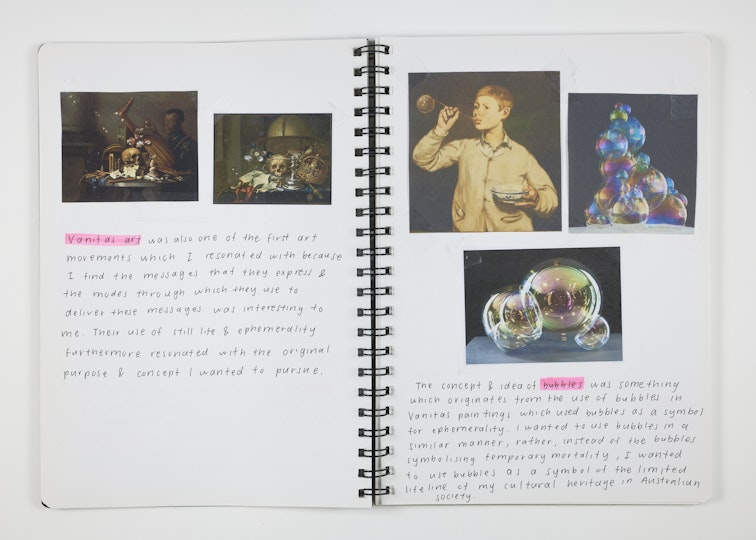 Vanitas art was also one of the first art
movements which I resonated with because
I find the messages that they express &
the modes through which they use to
deliver these messages was interesting to
me. Their use of still life & ephemerality
furthermore resonated with the original
purpose & concept I wanted to pursue.
The concept & idea of bubbles was something
which originates from the use of bubbles in
Vanitas paintings which used bubbles as a symbol
for ephemerality. I wanted to use bubbles in a
similar manner, rather, instead of the bubbles
symbolising temporary mortality, I wanted
to use bubbles as a symbol of the limited
lifeline of my cultural heritage in Australian
society.